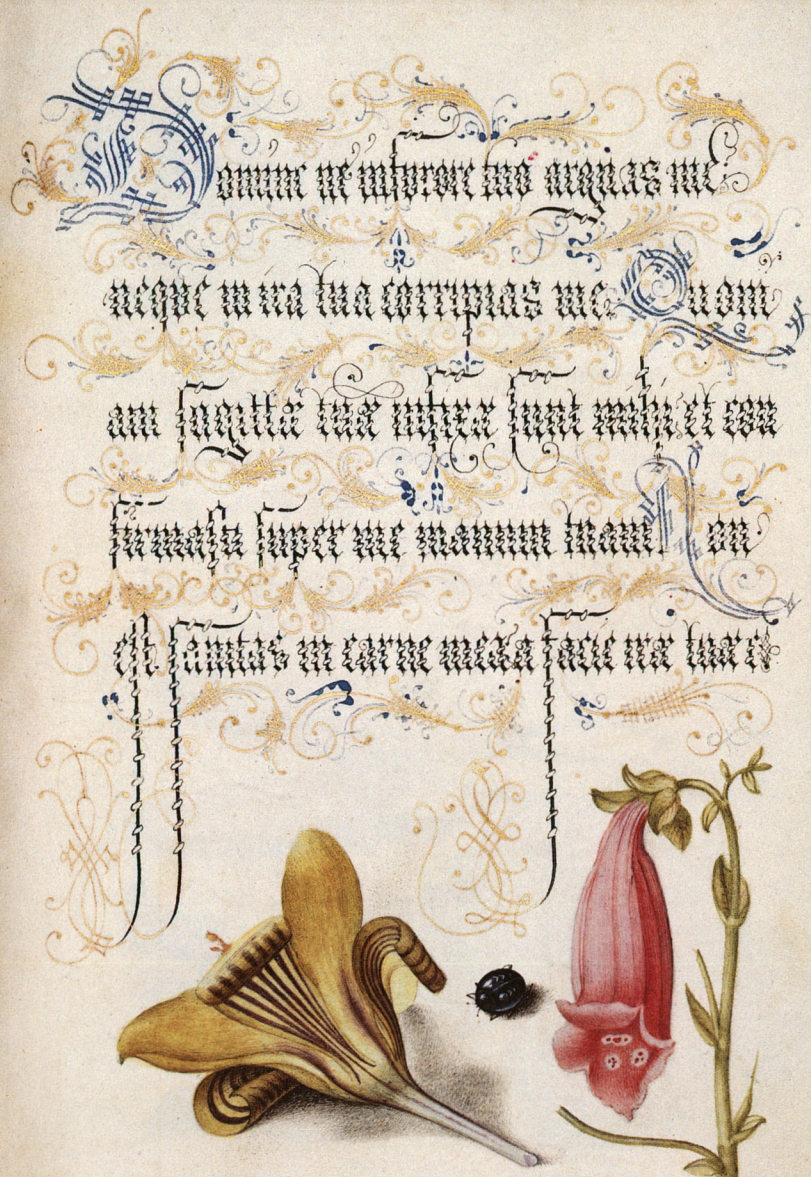 Domine ne in furore tuo arguas me
neque in ira tua corripias me. Quoni
am sagittæ tuæ infixæ sunt mihi, et con
firmasti super me manum tuam. Non
est sanitas in carne mea a facie iræ tuæ